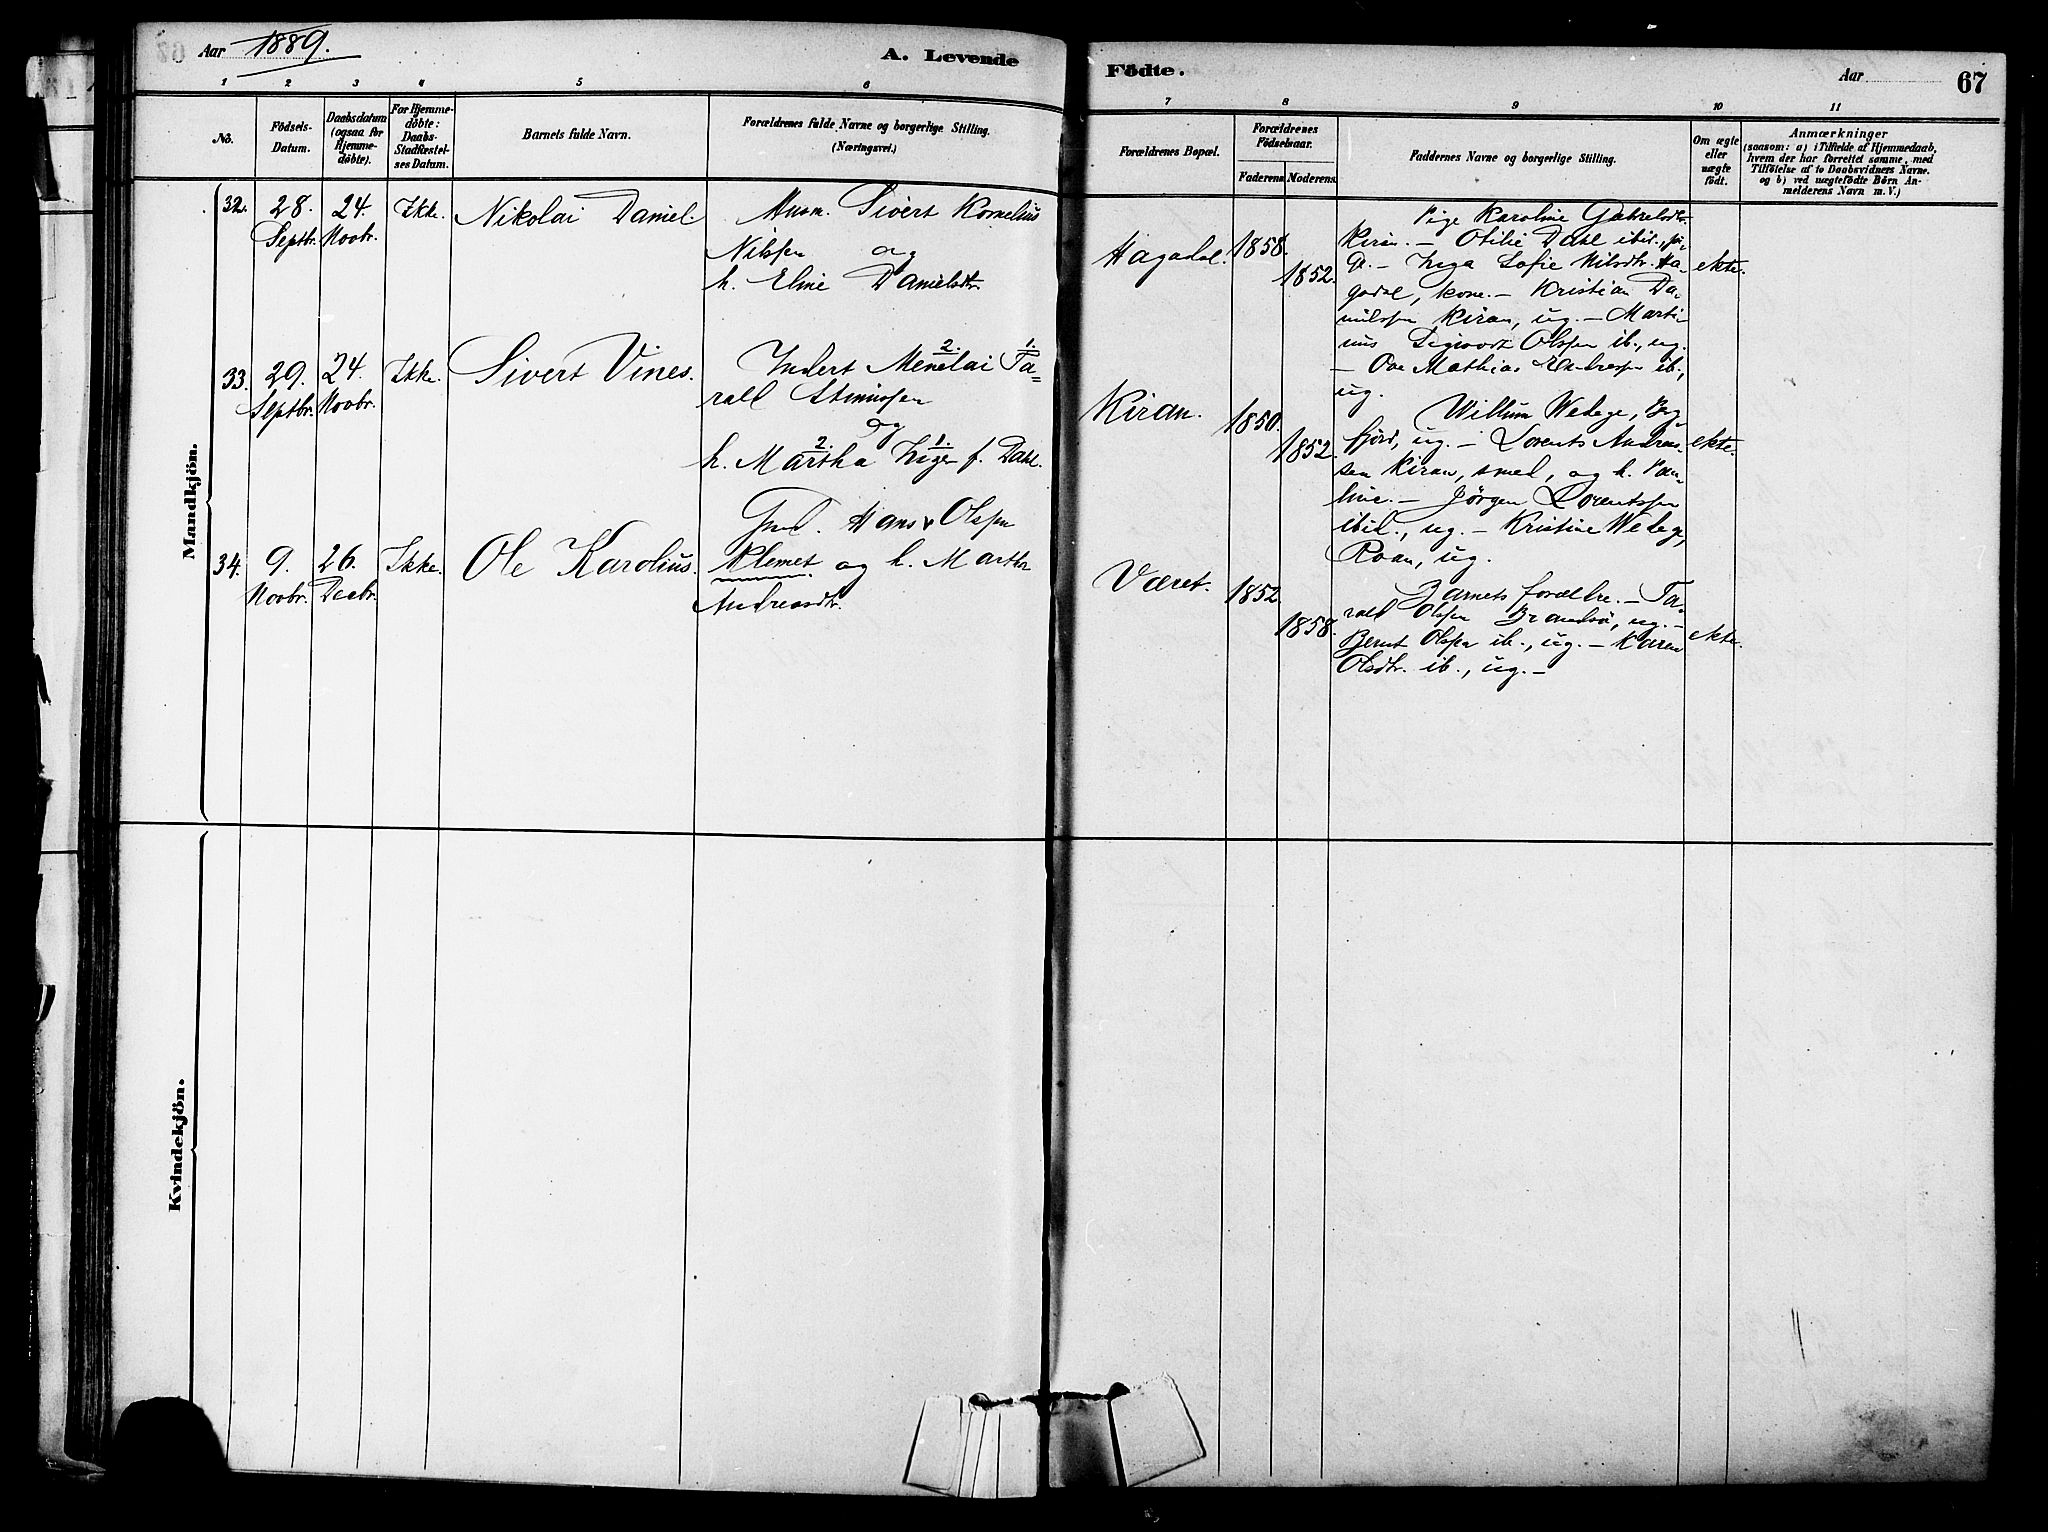 Aar 1889.
A. Levende
Födte.
Aar
67
1 2 3 4 5 6
7 8 9 10 11
No.
Födsels-
Datum.
Daabsdatum
(ogsaa for
Hjemme-
döbte).
For Hjemme-
döbte:
Daabs-
Stadfæstel-
ses Datum.
Barnets fulde Navn.
Forældrenes fulde Navne og borgerlige Stilling.
(Næringsvei.)
Forældrenes Bopæl.
Forældrenes
Födselsaar.
Faderens.
Moderens.
Faddernes Navne og borgerlige Stilling.
Om ægte
eller
uægte
födt.
Anmærkninger
(saasom: a) i Tilfælde af Hjemmedaab,
hvem der har forrettet samme, med
Tilföielse af to Daabsvidners Navne.
og b) ved uægtefödte Börn An-
melderens Navn m. V.)
Mandkjön.
32.
28.
Septbr.
24.
Novbr.
Ikke.
Nikolai Daniel.
Husm. Sivert Kornelius
Nilssen og
h. Eline Danielsdtr.
Hagadal.
1858.
1852.
Pige Karoline Gabrielsdtr.
Kiran. – Otilie Dahl ibid., pi-
ge. – Inga Sofie Nilsdtr. Ha-
gadal, kone. – Kristian Da-
nielssen Kiran, ug. – Marti-
nus Sigvart Olssen ib., ug.
– Ove Mathias Andressen ib.,
ug.
ekte.
33.
29.
Septbr.
24.
Novbr.
Ikke.
Sivert Vines.
Inderst Menelai 2. Ta= 1.
rall Stinussen
og
h. Martha 2. Inger 1. f. Dahl.
Kiran.
1850.
1852.
Willum Wedege, Ber
fjord, ug. – Lorents Andreas-
sen Kiran, smed, og h. Pau-
line. – Jörgen Lorentssen
ibid., ug. – Kristine Wedege,
Roan, ug.
ekte.
34.
9.
Novbr.
26.
Decbr.
Ikke.
Ole Karolius.
Gmd. Hans Olssen
Klemet og h. Martha
Andreasdtr.
Været.
1852.
1858.
Barnets forældre. – Ta-
rall Olssen Brandsö, ug. –
Bernt Olssen ib., ug. – Karen
Olsdtr. ib., ug. –
ekte.
Kvindekjön.